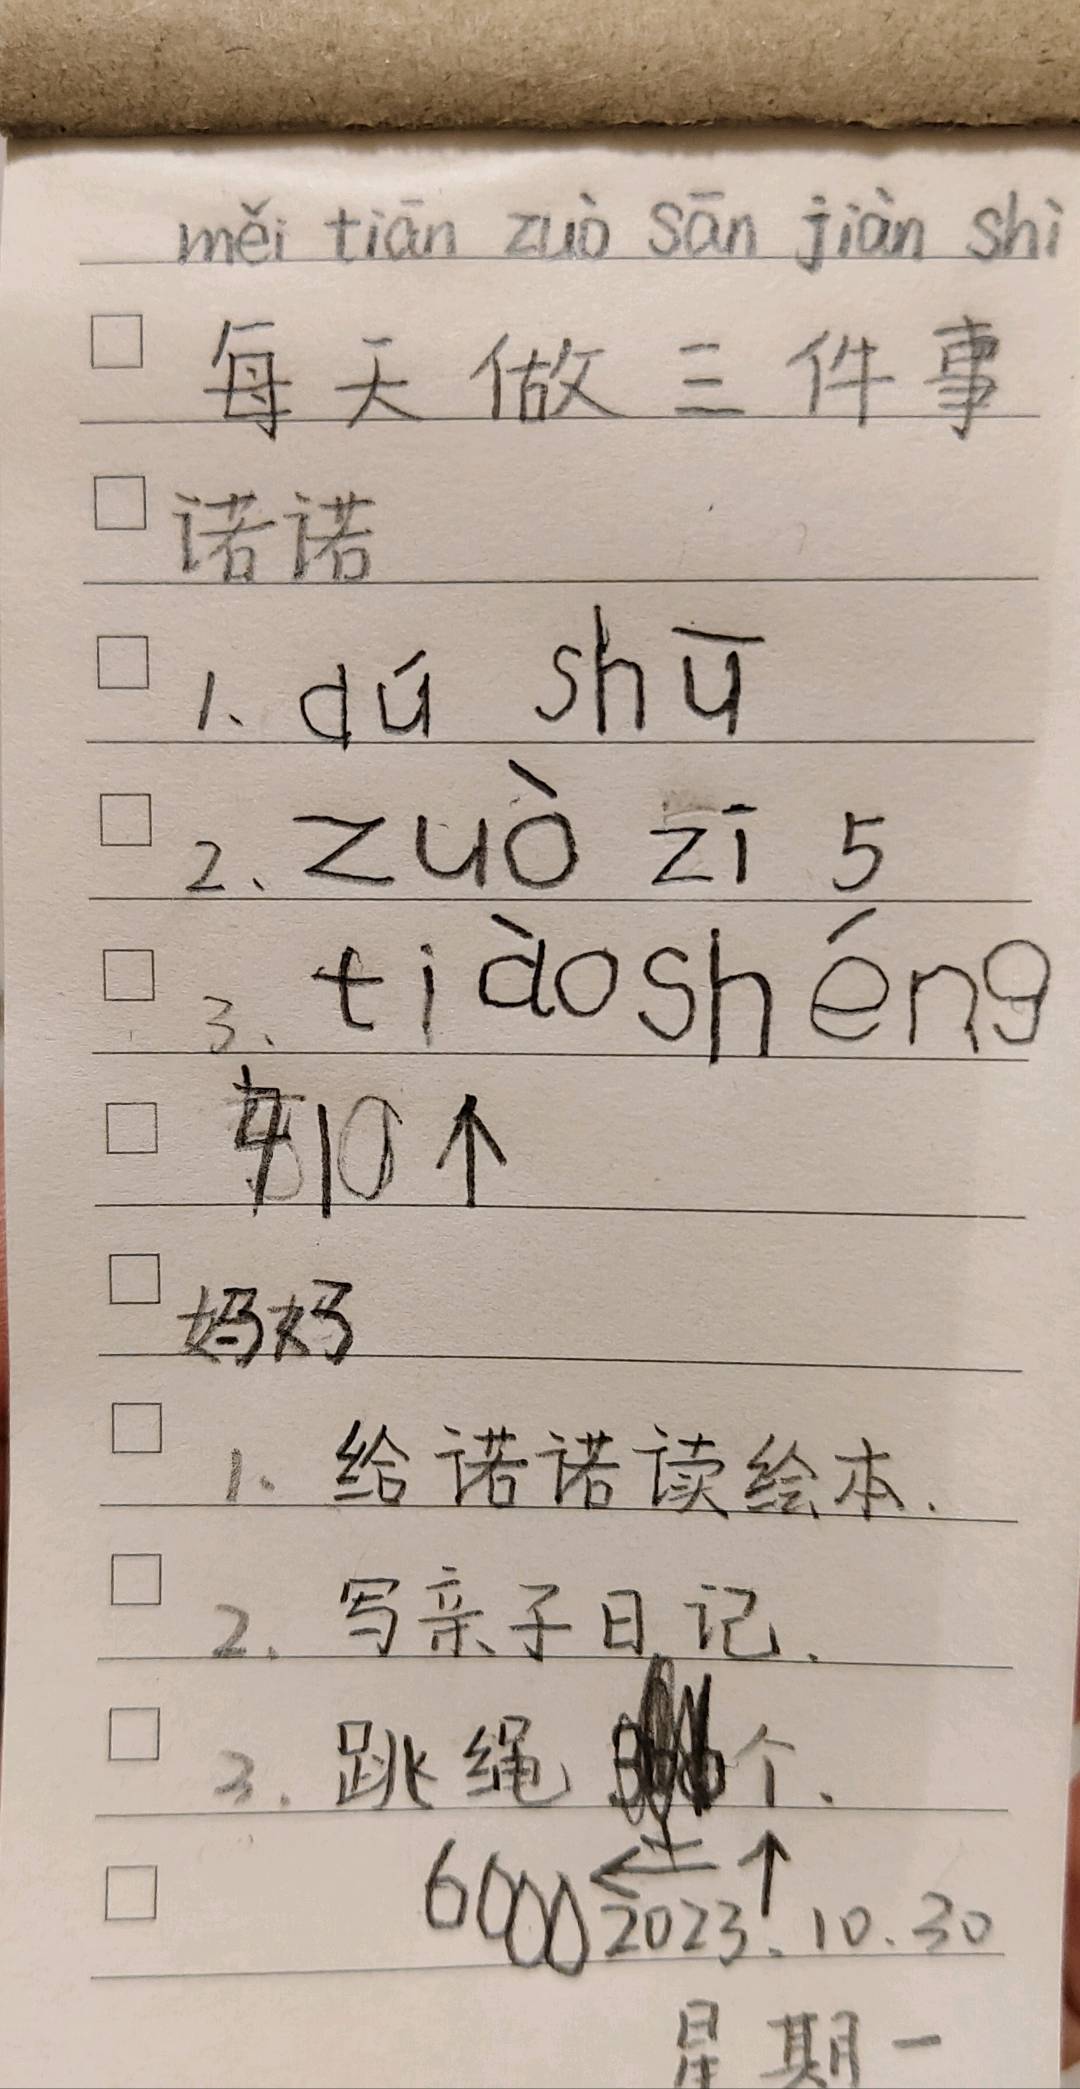 měi tiān zuò sān jiàn shì
每天做三件事
诺诺
1. dú shū
2. zuò zī 5
3. tiàoshéng
10个
妈妈
1. 给诺诺读绘本.
2. 写亲子日记.
3. 跳绳 个.
6000 个
2023.10.30
星期一